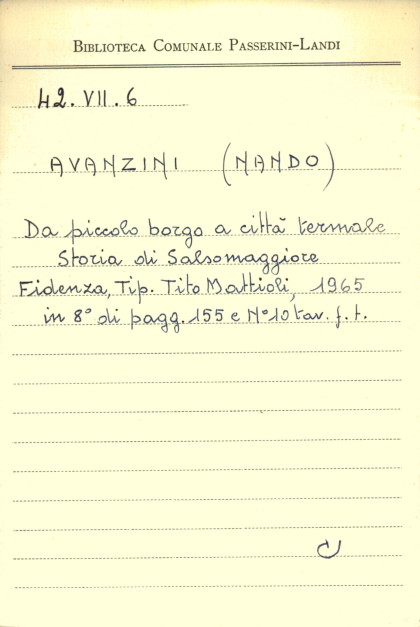 BIBLIOTECA COMUNALE PASSERINI-LANDI
42. VII. 6
AVANZINI (NANDO)
Da piccolo borgo a città termale
Storia di Salsomaggiore
Fidenza, Tip. Tito Mattioli, 1965
in 8° di pagg. 155 e N° 10 tav. f. t.